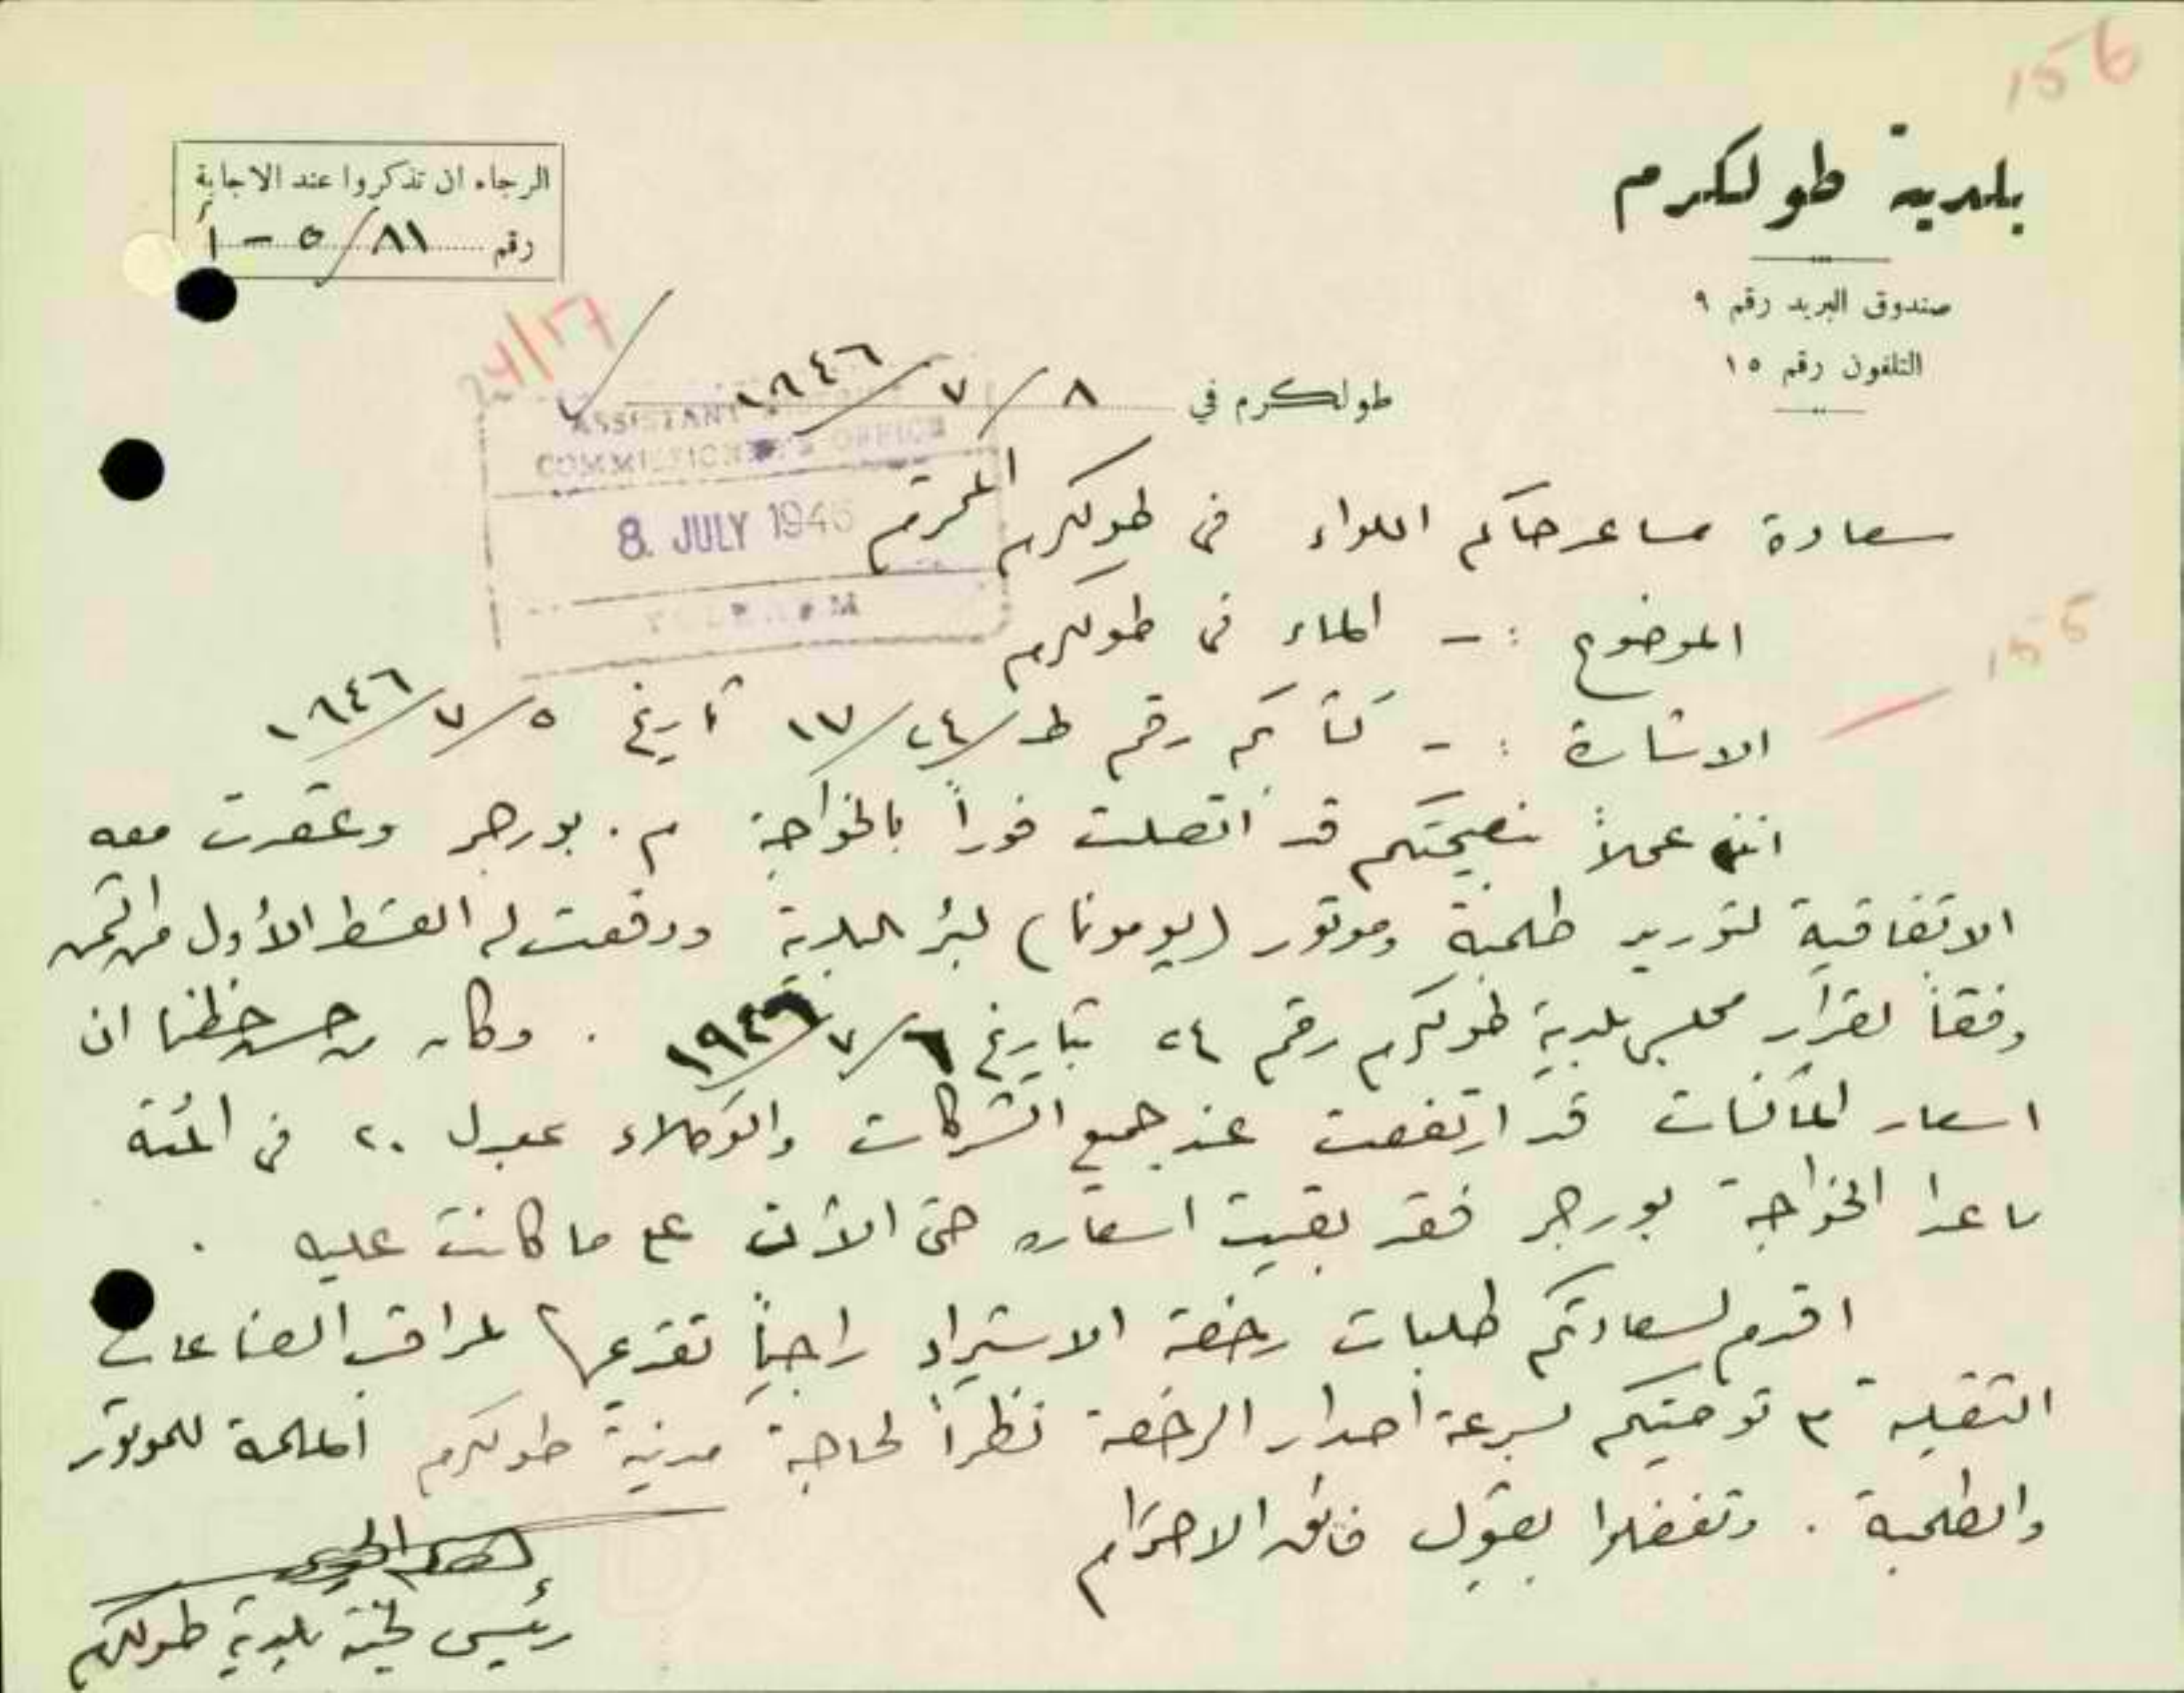 156
بلدية طولكرم
صندوق البريد رقم ٩
التلفون رقم ١٥
الرجاء ان تذكروا عند الاجابة
رقم ٨١/٥ - أ
24/17
طولكرم في ٨/٧/١٩٤٦
ASSISTANT
COMMISSIONER'S OFFICE
8. JULY 1946
سعادة مساعد حاكم اللواء في طولكرم المحترم
الموضوع :- الماء في طولكرم
155
الاشارة :- كتابكم رقم ط/٢٤/١٧ تاريخ ٥/٧/١٩٤٦
انني عملاً بنصيحتكم قد اتصلت فوراً بالخواجة م. بورجر وعقدت معه
الاتفاقية لتوريد طلمبة وموتور (بومونا) لبئر البلدية ودفعت له القسط الأول من الثمن
وفقاً لقرار مجلس بلدية طولكرم رقم ٢٤ بتاريخ ٦/٧/١٩٤٦ . وكان من حسن حظنا ان
اسعار الماكنات قد ارتفعت عند جميع الشركات والوكلاء بمعدل ٢٠ في المئة
ما عدا الخواجة بورجر فقد بقيت اسعاره حتى الآن على ما كانت عليه .
اقدم لسعادتكم طلبات رخصة الاستيراد راجياً تقديمها لمراقب الصناعات
الثقيلة مع توصيتكم بسرعة اصدار الرخصة نظراً لحاجة مدينة طولكرم الملحة للموتور
والطلمبة . وتفضلوا بقبول فائق الاحترام
رئيس لجنة بلدية طولكرم